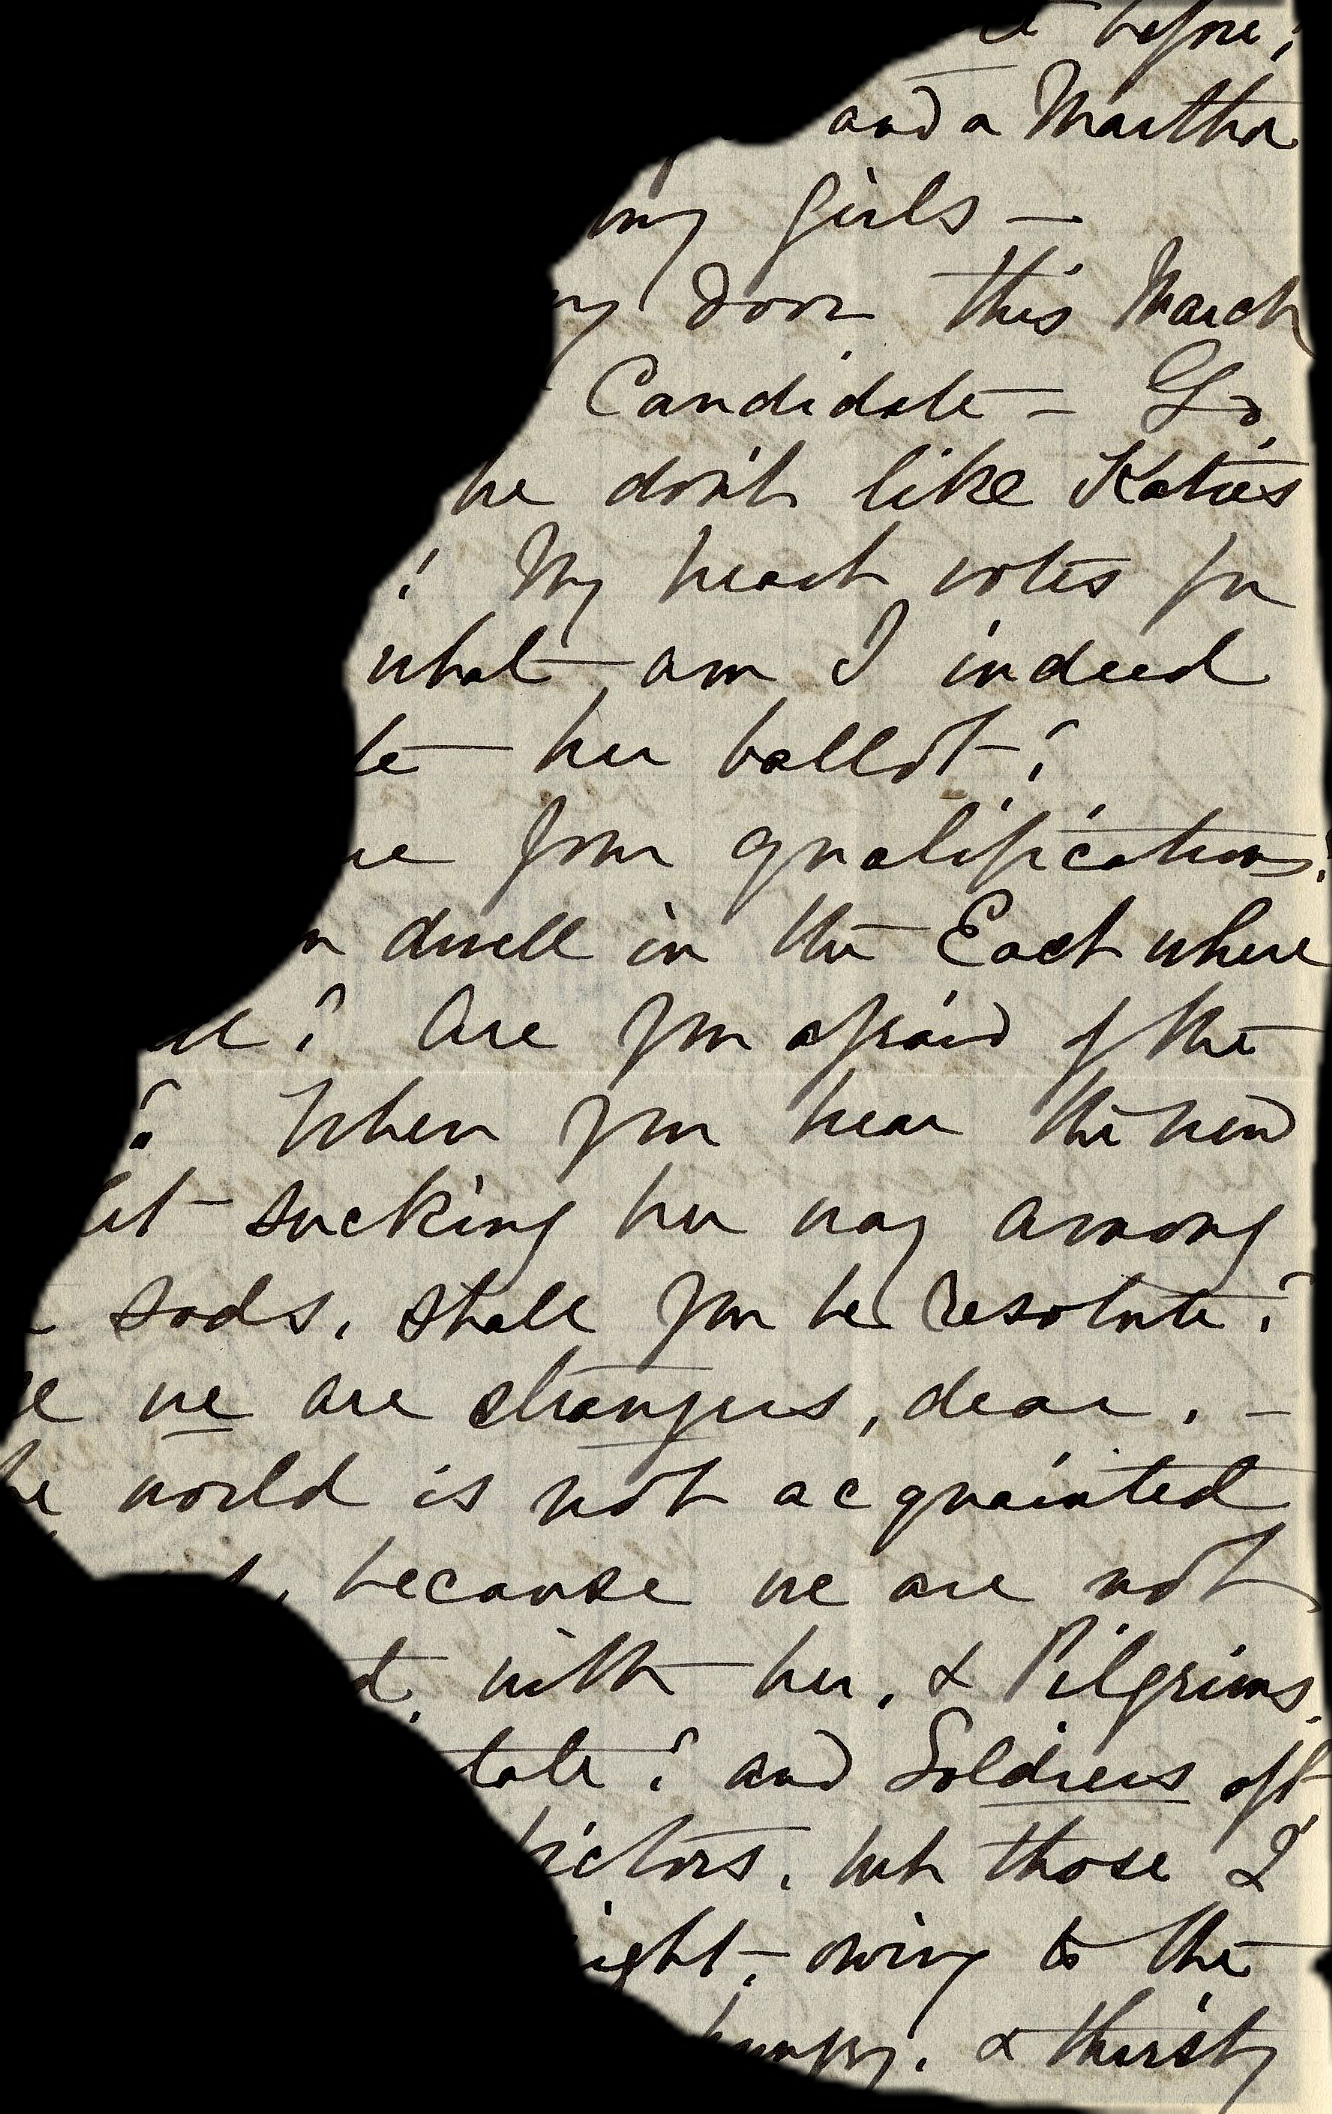 before,
and a Martha
my girls —
my door this March
Candidate — Go
he don't like Katie's
! My heart votes for
what am I indeed
her ballot?
your qualifications?
dwell in the East where
? Are you afraid of the
? When you hear the new
sucking her way among
sods, shall you be resolute?
we are strangers, dear. —
world is not acquainted
because we are not
with her, & Pilgrims,
and Soldiers oft
victors, but those I
owing to the
hungry, & thirsty